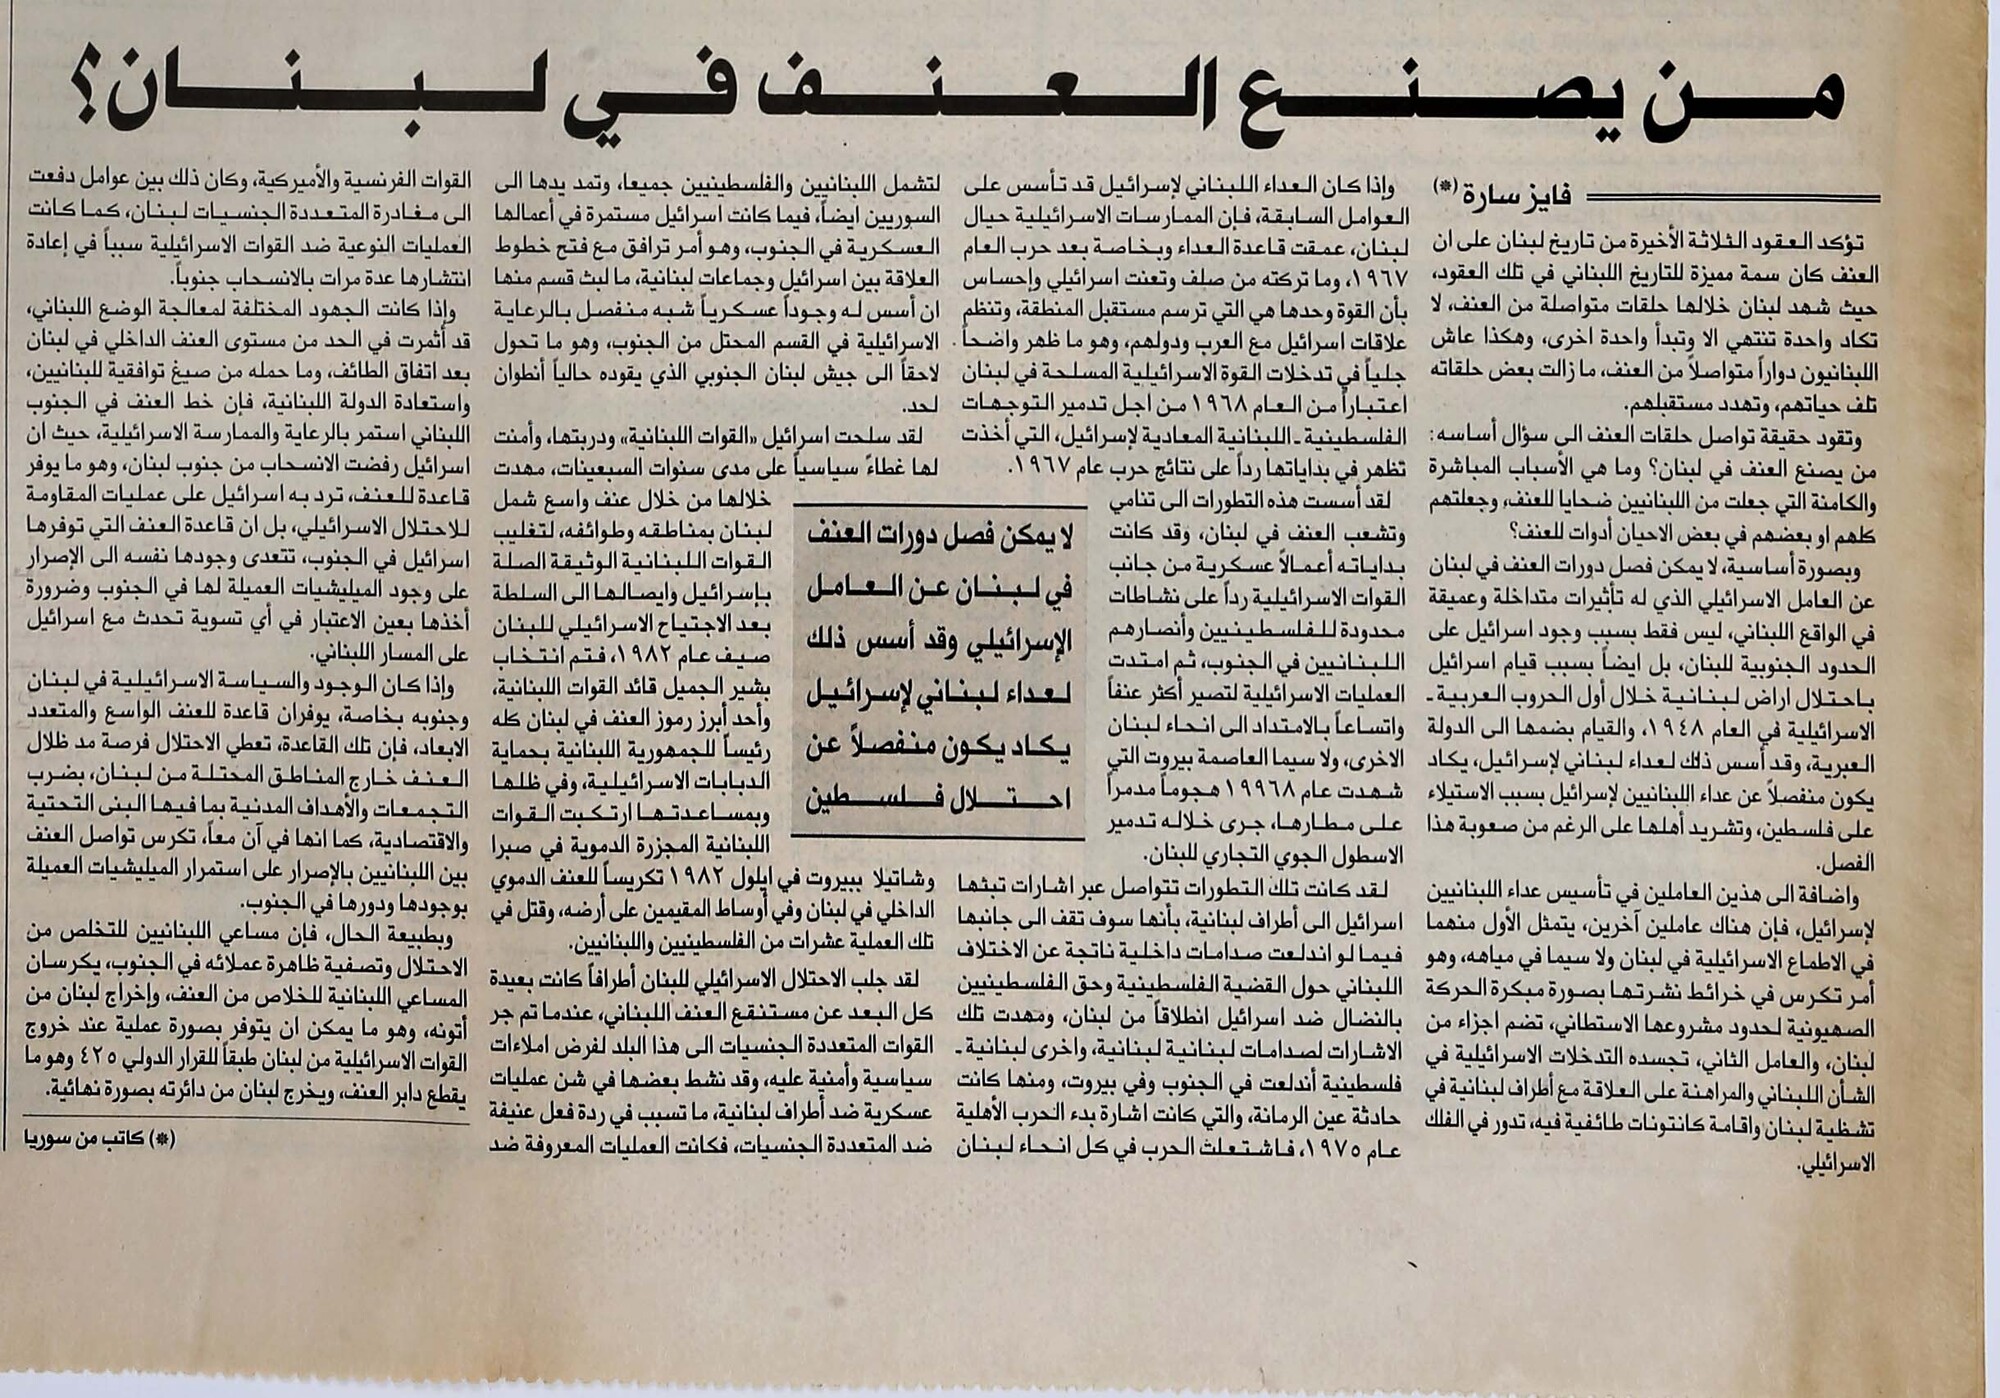 من يصنع العنف في لبنان؟
فايز سارة (*)
تؤكد العقود الثلاثة الأخيرة من تاريخ لبنان على ان
العنف كان سمة مميزة للتاريخ اللبناني في تلك العقود،
حيث شهد لبنان خلالها حلقات متواصلة من العنف، لا
تكاد واحدة تنتهي الا وتبدأ واحدة اخرى، وهكذا عاش
اللبنانيون دواراً متواصلاً من العنف، ما زالت بعض حلقاته
تلف حياتهم، وتهدد مستقبلهم.
وتقود حقيقة تواصل حلقات العنف الى سؤال أساسه:
من يصنع العنف في لبنان؟ وما هي الأسباب المباشرة
والكامنة التي جعلت من اللبنانيين ضحايا للعنف، وجعلتهم
كلهم او بعضهم في بعض الاحيان أدوات للعنف؟
وبصورة أساسية، لا يمكن فصل دورات العنف في لبنان
عن العامل الاسرائيلي الذي له تأثيرات متداخلة وعميقة
في الواقع اللبناني، ليس فقط بسبب وجود اسرائيل على
الحدود الجنوبية للبنان، بل ايضاً بسبب قيام اسرائيل
باحتلال اراض لبنانية خلال أول الحروب العربية ـ
الاسرائيلية في العام ١٩٤٨، والقيام بضمها الى الدولة
العبرية، وقد أسس ذلك لعداء لبناني لإسرائيل، يكاد
يكون منفصلاً عن عداء اللبنانيين لإسرائيل بسبب الاستيلاء
على فلسطين، وتشريد أهلها على الرغم من صعوبة هذا
الفصل.
واضافة الى هذين العاملين في تأسيس عداء اللبنانيين
لإسرائيل، فإن هناك عاملين آخرين، يتمثل الأول منهما
في الاطماع الاسرائيلية في لبنان ولا سيما في مياهه، وهو
أمر تكرس في خرائط نشرتها بصورة مبكرة الحركة
الصهيونية لحدود مشروعها الاستطاني، تضم اجزاء من
لبنان، والعامل الثاني، تجسده التدخلات الاسرائيلية في
الشأن اللبناني والمراهنة على العلاقة مع أطراف لبنانية في
تشظية لبنان واقامة كانتونات طائفية فيه، تدور في الفلك
الاسرائيلي.
وإذا كان العداء اللبناني لإسرائيل قد تأسس على
العوامل السابقة، فإن الممارسات الاسرائيلية حيال
لبنان، عمقت قاعدة العداء وبخاصة بعد حرب العام
١٩٦٧، وما تركته من صلف وتعنت اسرائيلي وإحساس
بأن القوة وحدها هي التي ترسم مستقبل المنطقة، وتنظم
علاقات اسرائيل مع العرب ودولهم، وهو ما ظهر واضحاً
جلياً في تدخلات القوة الاسرائيلية المسلحة في لبنان
اعتباراً من العام ١٩٦٨ من اجل تدمير التوجهات
الفلسطينية ـ اللبنانية المعادية لإسرائيل، التي أخذت
تظهر في بداياتها رداً على نتائج حرب عام ١٩٦٧.
لقد أسست هذه التطورات الى تنامي
وتشعب العنف في لبنان، وقد كانت
بداياته أعمالاً عسكرية من جانب
القوات الاسرائيلية رداً على نشاطات
محدودة للفلسطينيين وأنصارهم
اللبنانيين في الجنوب، ثم امتدت
العمليات الاسرائيلية لتصير أكثر عنفاً
واتساعاً بالامتداد الى انحاء لبنان
الاخرى، ولا سيما العاصمة بيروت التي
شهدت عام ١٩٩٦٨ هجوماً مدمراً
على مطارها، جرى خلاله تدمير
الاسطول الجوي التجاري للبنان.
لقد كانت تلك التطورات تتواصل عبر اشارات تبثها
اسرائيل الى أطراف لبنانية، بأنها سوف تقف الى جانبها
فيما لو اندلعت صدامات داخلية ناتجة عن الاختلاف
اللبناني حول القضية الفلسطينية وحق الفلسطينيين
بالنضال ضد اسرائيل انطلاقاً من لبنان، ومهدت تلك
الاشارات لصدامات لبنانية لبنانية، واخرى لبنانية ـ
فلسطينية أندلعت في الجنوب وفي بيروت، ومنها كانت
حادثة عين الرمانة، والتي كانت اشارة بدء الحرب الأهلية
عام ١٩٧٥، فاشتعلت الحرب في كل انحاء لبنان
لا يمكن فصل دورات العنف
في لبنان عن العامل
الإسرائيلي وقد أسس ذلك
لعداء لبناني لإسرائيل
يكاد يكون منفصلاً عن
احتلال فلسطين
لتشمل اللبنانيين والفلسطينيين جميعا، وتمد يدها الى
السوريين ايضاً، فيما كانت اسرائيل مستمرة في أعمالها
العسكرية في الجنوب، وهو أمر ترافق مع فتح خطوط
العلاقة بين اسرائيل وجماعات لبنانية، ما لبث قسم منها
ان أسس له وجوداً عسكرياً شبه منفصل بالرعاية
الاسرائيلية في القسم المحتل من الجنوب، وهو ما تحول
لاحقاً الى جيش لبنان الجنوبي الذي يقوده حالياً أنطوان
لحد.
لقد سلحت اسرائيل «القوات اللبنانية» ودربتها، وأمنت
لها غطاءً سياسياً على مدى سنوات السبعينات، مهدت
خلالها من خلال عنف واسع شمل
لبنان بمناطقه وطوائفه، لتغليب
القوات اللبنانية الوثيقة الصلة
بإسرائيل وايصالها الى السلطة
بعد الاجتياح الاسرائيلي للبنان
صيف عام ١٩٨٢، فتم انتخاب
بشير الجميل قائد القوات اللبنانية،
وأحد أبرز رموز العنف في لبنان كله
رئيساً للجمهورية اللبنانية بحماية
الدبابات الاسرائيلية، وفي ظلها
وبمساعدتها ارتكبت القوات
اللبنانية المجزرة الدموية في صبرا
وشاتيلا ببيروت في ايلول ١٩٨٢ تكريساً للعنف الدموي
الداخلي في لبنان وفي أوساط المقيمين على أرضه، وقتل في
تلك العملية عشرات من الفلسطينيين واللبنانيين.
لقد جلب الاحتلال الاسرائيلي للبنان أطرافاً كانت بعيدة
كل البعد عن مستنقع العنف اللبناني، عندما تم جر
القوات المتعددة الجنسيات الى هذا البلد لفرض املاءات
سياسية وأمنية عليه، وقد نشط بعضها في شن عمليات
عسكرية ضد أطراف لبنانية، ما تسبب في ردة فعل عنيفة
ضد المتعددة الجنسيات، فكانت العمليات المعروفة ضد
القوات الفرنسية والأميركية، وكان ذلك بين عوامل دفعت
الى مغادرة المتعددة الجنسيات لبنان، كما كانت
العمليات النوعية ضد القوات الاسرائيلية سبباً في إعادة
انتشارها عدة مرات بالانسحاب جنوباً.
وإذا كانت الجهود المختلفة لمعالجة الوضع اللبناني،
قد أثمرت في الحد من مستوى العنف الداخلي في لبنان
بعد اتفاق الطائف، وما حمله من صيغ توافقية للبنانيين،
واستعادة الدولة اللبنانية، فإن خط العنف في الجنوب
اللبناني استمر بالرعاية والممارسة الاسرائيلية، حيث ان
اسرائيل رفضت الانسحاب من جنوب لبنان، وهو ما يوفر
قاعدة للعنف، ترد به اسرائيل على عمليات المقاومة
للاحتلال الاسرائيلي، بل ان قاعدة العنف التي توفرها
اسرائيل في الجنوب، تتعدى وجودها نفسه الى الإصرار
على وجود الميليشيات العميلة لها في الجنوب وضرورة
أخذها بعين الاعتبار في أي تسوية تحدث مع اسرائيل
على المسار اللبناني.
وإذا كان الوجود والسياسة الاسرائيلية في لبنان
وجنوبه بخاصة، يوفران قاعدة للعنف الواسع والمتعدد
الابعاد، فإن تلك القاعدة، تعطي الاحتلال فرصة مد ظلال
العنف خارج المناطق المحتلة من لبنان، بضرب
التجمعات والأهداف المدنية بما فيها البنى التحتية
والاقتصادية، كما انها في آن معاً، تكرس تواصل العنف
بين اللبنانيين بالإصرار على استمرار الميليشيات العميلة
بوجودها ودورها في الجنوب.
وبطبيعة الحال، فإن مساعي اللبنانيين للتخلص من
الاحتلال وتصفية ظاهرة عملائه في الجنوب، يكرسان
المساعي اللبنانية للخلاص من العنف، وإخراج لبنان من
أتونه، وهو ما يمكن ان يتوفر بصورة عملية عند خروج
القوات الاسرائيلية من لبنان طبقاً للقرار الدولي ٤٢٥ وهو ما
يقطع دابر العنف، ويخرج لبنان من دائرته بصورة نهائية.
(*) كاتب من سوريا